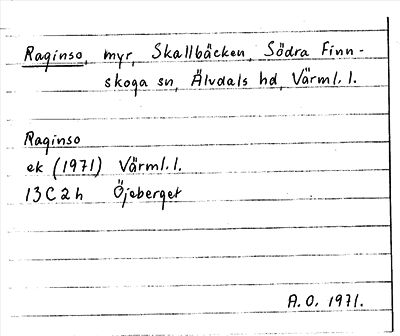 Raginso, myr, Skallbäcken, Södra Finn-
skoga sn, Älvdals hd, Värml. l.
Raginso
ek (1971) Värml. l.
13 C 2 h Öjeberget
A. O. 1971.